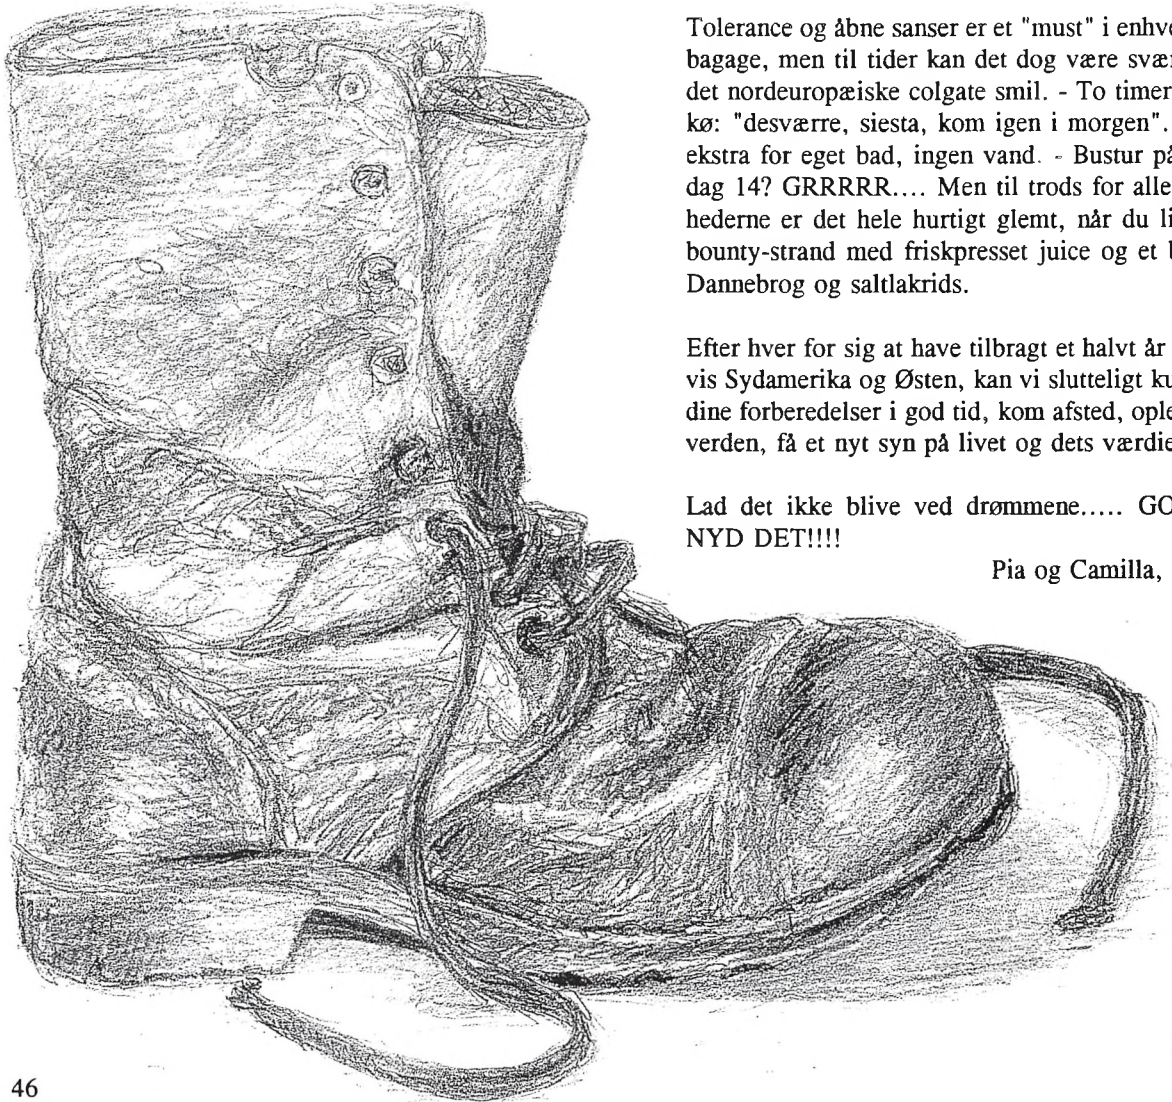 Tolerance og åbne sanser er et "must" i enhve
bagage, men til tider kan det dog være svær
det nordeuropæiske colgate smil. - To timer
kø: "desværre, siesta, kom igen i morgen".
ekstra for eget bad, ingen vand. - Bustur på
dag 14? GRRRRR.... Men til trods for alle
hederne er det hele hurtigt glemt, når du li
bounty-strand med friskpresset juice og et
Dannebrog og saltlakrids.
Efter hver for sig at have tilbragt et halvt år
vis Sydamerika og Østen, kan vi slutteligt ku
dine forberedelser i god tid, kom afsted, ople
verden, få et nyt syn på livet og dets værdie
Lad det ikke blive ved drømmene..... GO
NYD DET!!!!
Pia og Camilla,
46